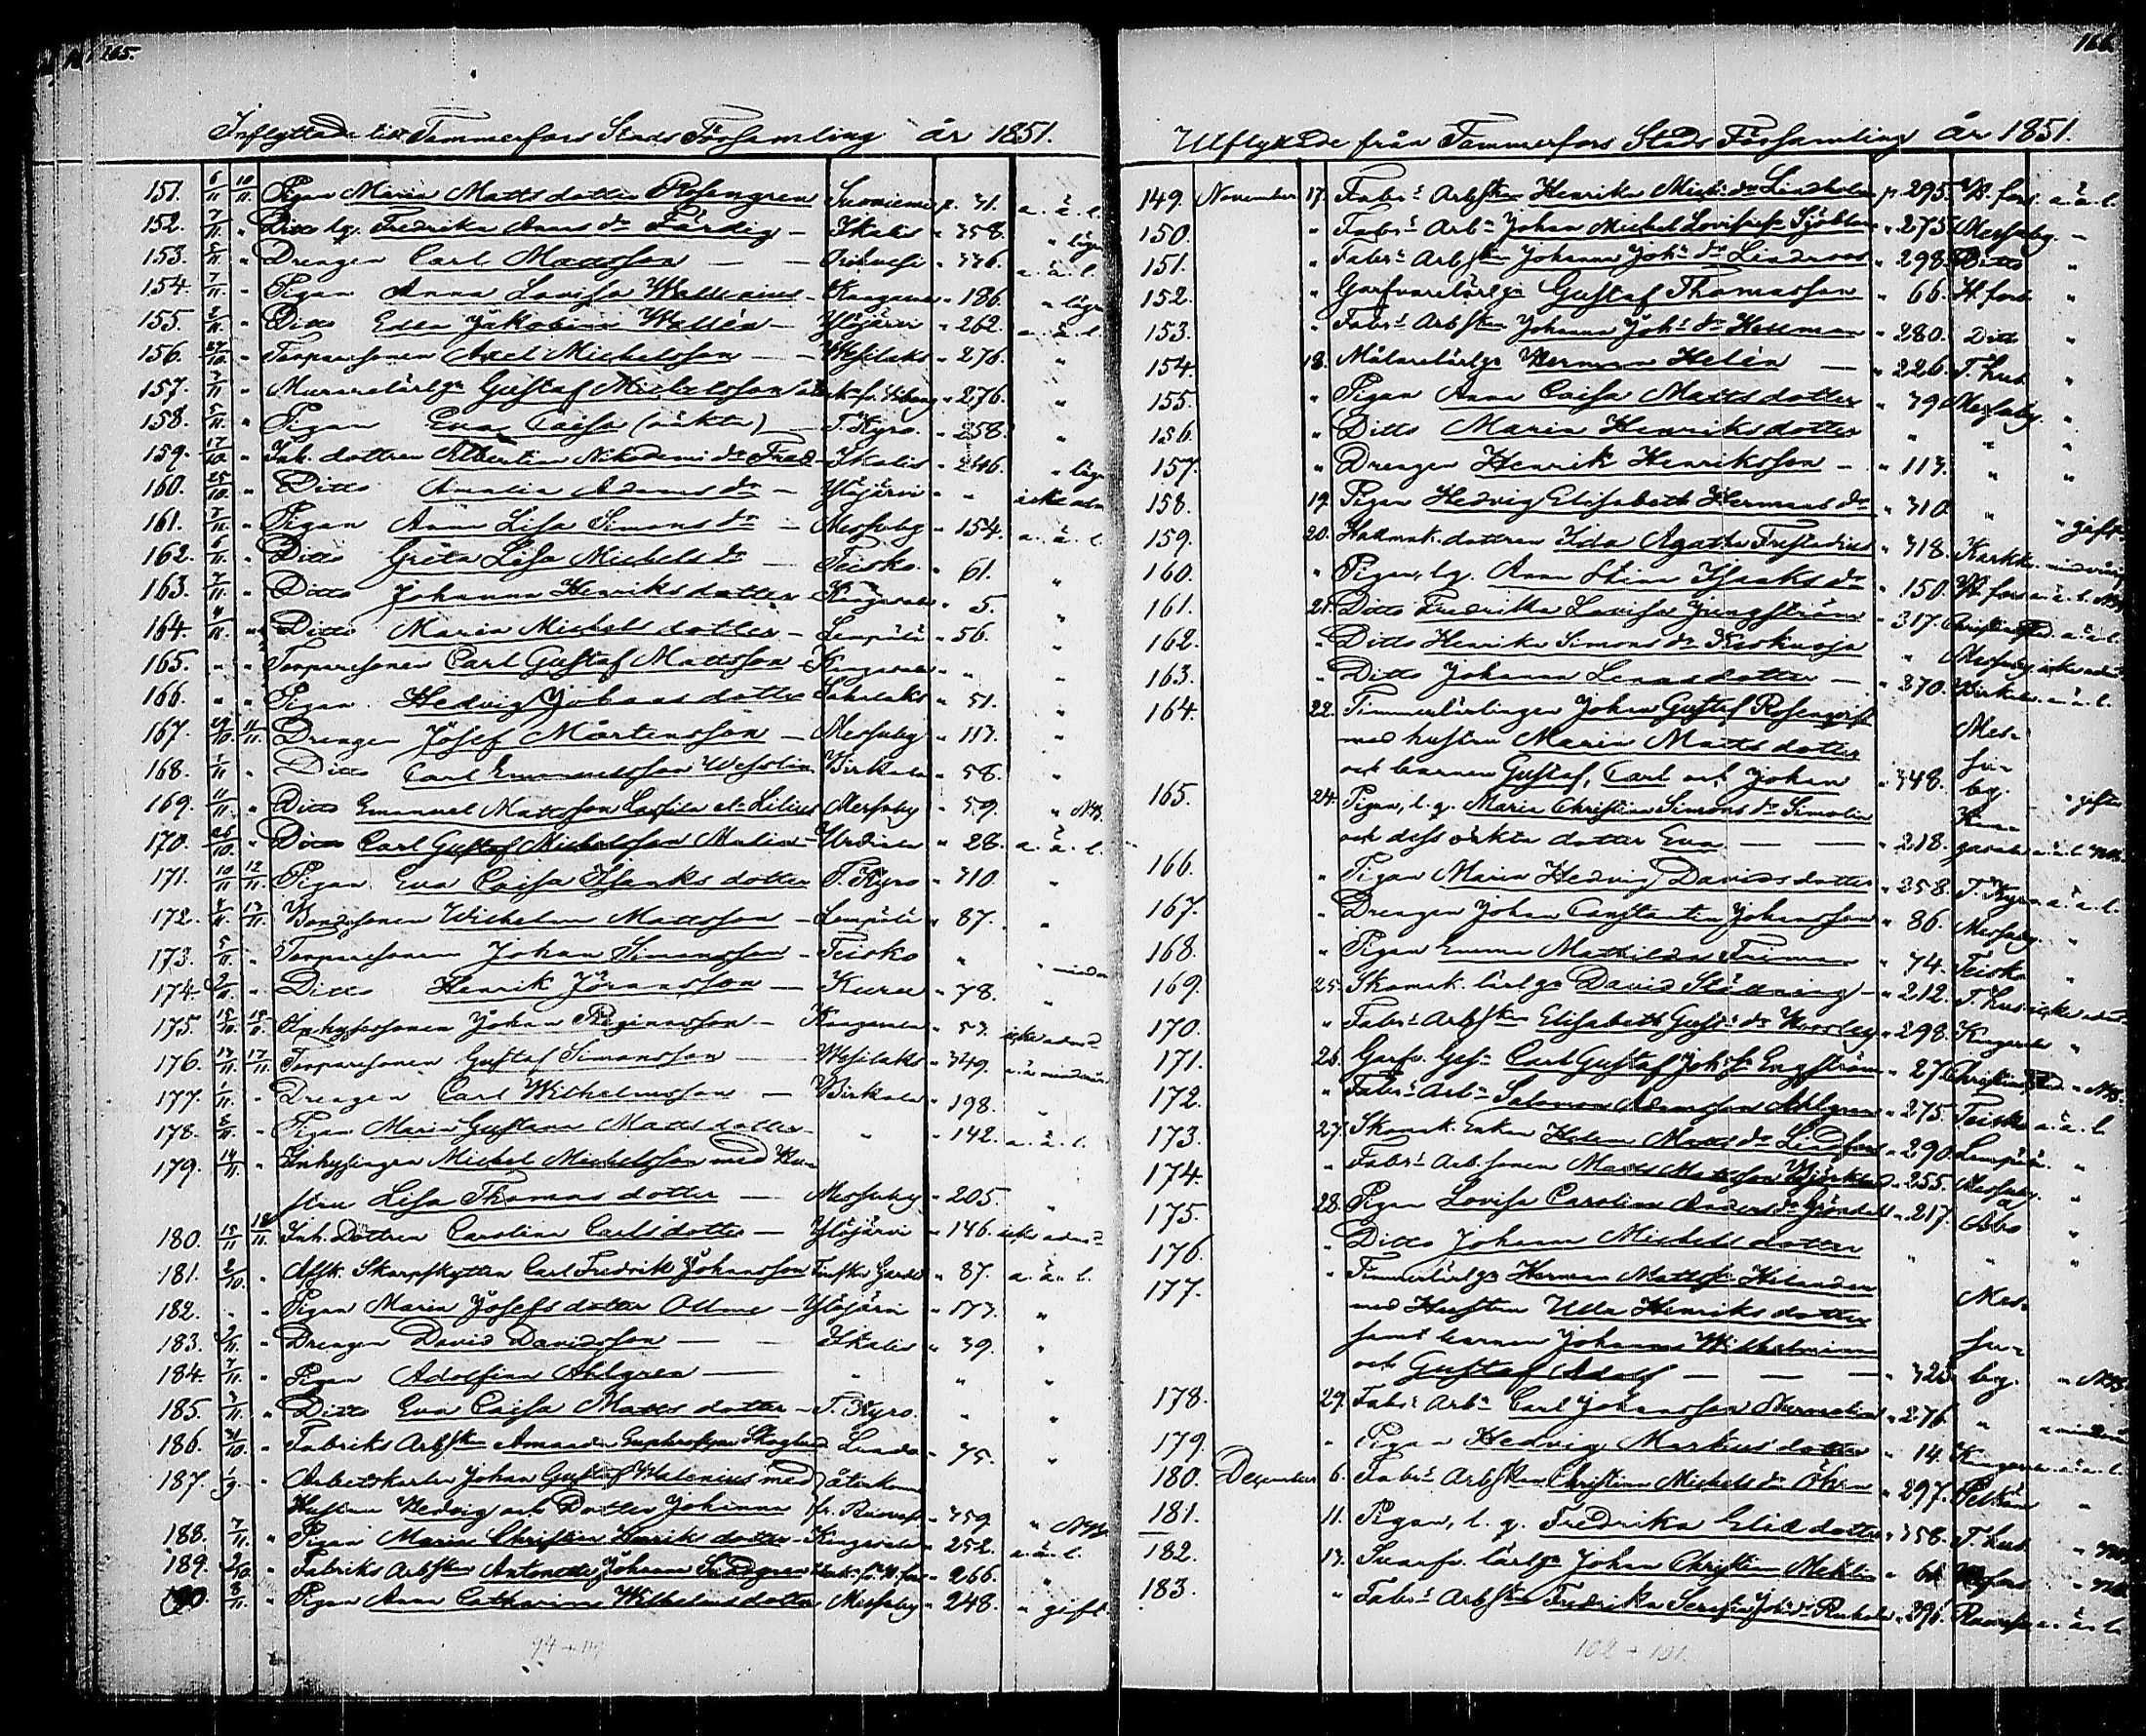 165.
Inflyttade till Tammerfors Stads Församling år 1851.
151. 6/11 10/11 Pigan Maria Mattsdotter Rosengren Suoniemi p. 31. a. ä. l.
152. 7/11 " Ditto lq. Fredrika Anns dr Färdig - Ikalis " 358. "
153. 5/11 " Drengen Carl Mattsson - - " 336. a. ä. l.
154. 7/11 " Pigan Anna Lovisa Wallenius - Kangasala " 186. "
155. 2/11 " Ditto Edla Jakobina Wallén - Ylöjärvi " 262. a. ä. l.
156. 27/10 " Torparesonen Axel Michelsson - - Wesilaks " 276. "
157. 7/11 " Murarelärlgn Gustaf Michelsson " 276. "
158. 5/11 " Pigan Eva Caisa (oäkta) - T. Kyro " 258. "
159. 17/10 " Inh. dottren Albertina Nikodemi dr - Ikalis " 246. "
160. 25/10 " Ditto Amalia Adams dr - Ylöjärvi " " icke adm
161. 7/11 " Pigan Anna Lisa Simons dr - Messuby " 154. a. ä. l.
162. 6/11 " Ditto Greta Lisa Michels dr - Teisko " 61. "
163. 7/11 " Ditto Johanna Henriksdotter - Kangasala " 5. "
164. " Ditto Maria Michelsdotter - Lempälä " 56. "
165. " " Torparesonen Carl Gustaf Mattsson - Kangasala " " "
166. " " Pigan Hedvig Johansdotter Sahalaks " 51. "
167. 29/10 11/11 Drengen Josef Mårtensson - Messuby " 113. "
168. " Ditto Carl Emanuelsson Wesslin Birkala " 58. "
169. 11/11 " Ditto Emanuel Mattsson Lassila el. Lilius Messuby " 59. " NB.
170. 26/10 " Ditto Carl Gustaf Michelsson Malin - Urdiala " 28. a. ä. l.
171. 10/11 12/11 Pigan Eva Caisa Isaksdotter T. Kyro " 310. "
172. 13/11 Bondesonen Wilhelm Mattsson - Lempälä " 87. "
173. 5/11 " Torparesonen Johan Simonsson - Teisko " "
174. 2/11 " Ditto Henrik Göransson - Kuru " 78. "
175. 15/11 Inhysessonen Johan - Kangasala " 53. icke adm:d
176. 13/11 17/11 Torparesonen Gustaf Simonsson - Wesilaks " 349.
177. 1/11 " Drengen Carl Wilhelmsson - Birkala " 198. "
178. 8/11 " Pigan Maria Gustava Mattsdotter - " " 142. a. ä. l.
179. 14/11 " Inhysingen Michel Michelsson med Hu-
stru Lisa Thomasdotter - Messuby " 205. "
180. 15/11 18/11 Inh. Dottren Carolina Carlsdotter - Ylöjärvi " 146. icke adm:d
181. 2/10 " Afsk. Skarpskytten Carl Fredrik Johansson Finska Gardet " 87. a. ä. l.
182. " " Pigan Maria Josefsdotter - Ylöjärvi " 173. "
183. 2/11 " Drengen David Davidsson - - Ikalis " 39. "
184. 7/11 " Pigan Adolfina Ahlgren - " " "
185. 3/11 " Ditto Eva Caisa Matts dotter - T. Kyro. " "
186. 31/10 " Fabriks Arbskan Amanda Euphrosyne Skoglund " 75. "
187. 1/9 " Arbetskarlen Johan Gustaf Walenius med återkom
Hustrun Hedvig och Dotter Johanna fr. " 359. " NB
188. 7/11 " Pigan Maria Christina Henriksdotter - Kangasala " 252. a. ä. l.
189. " Fabriks Arbskan Antonetta Johanna " 266. "
190. 8/11 " Pigan Anna Catharina Wilhelmsdotter Messuby " 248. " gift.
166.
Utflyttade från Tammerfors Stads Församling år 1851.
149. November 17. Fabrs Arbskan Henrika Michs dr Lindholm p. 295. H. fors. a. ä. l.
150. " Fabrs Arbn Johan Michel Sjöblom " 275 Messuby. "
151. " Fabrs Arbskan Johanna Johs dr Lindroos " 298. Ditto "
152. " Garfvarelärlgn Gustaf Thomasson " 66. H.fors "
153. " Fabrs Arbskan Johanna Johs dr Hellman " 280. Ditto "
154. 18. Målarelärlgn Herman Helén - " 226. T. hus "
155. " Pigan Anna Caisa Mattsdotter " 39 Messuby. "
156. " Ditto Maria Henriksdotter " " "
157. " Drengen Henrik Henriksson - " 113. " "
158. 19. Pigan Hedvig Elisabeth Hermans dr " 310. " " gift
159. 20. Hakmak. dottren Ida Agatha " 318. Karkku
160. " Pigan, lq. Anna Stina Isaks dr " 150. H. fors a. ä. l. NB
161. 21. Ditto Fredrika Lovisa Ljungström " 317. Christinestad. a. ä. l.
162. " Ditto Henrika Simons dr " Messuby icke adm:d
163. " Ditto Johanna - " 270. Birkala a. ä. l.
164. 22. Timmerlärlingen Johan Gustaf Rosenqvist
med hustru Maria Mattsdotter Mes-
och barnen Gustaf, Carl och Johan " 348. su-
by. " gifta
165. 24. Pigan, l. q. Maria Christina Simons dr Simolin Kan-
och dess oäkta dotter Eva - - " 218. gasala a. ä. l. NB.
166. " Pigan Maria Hedvig Davidsdotter " 258. T. Kyro a. ä. l.
167. " Drengen Johan Constantin Johansson " 86. Messuby. "
168. " Pigan Emma Mathilda Friman " 74. Teisko "
169. 25. Skomak. lärlgn David Ställning - " 212. T. hus icke adm:d
170. " Fabrs Arbskan Elisabeth Gusts dr " 298. Kangasala "
171. 26. Garfv. Gesn Carl Gustaf Johss Engström " 27. Christinestad " NB.
172. " Fabrs Arbn Salomon Adamsson Ahlgren " 275. Teisko a. ä. l.
173. 27. Skomak. Enkan Helena Matts dr Lindfors " 290. Lempälä. "
174. " Fabrs Arb. sonen Matts Mattsson Björklund " 255. Messuby. "
175. 28. Pigan Lovisa Carolina Anders dr Gröndahl " 217. Åbo "
176. " Ditto Johanna Michelsdotter " " "
177. " Timmerlärlgn Herman Mattss Helander
med Hustrun Ulla Henriksdotter Mes-
samt barnen Johanna Wilhelmina su-
och Gustaf Adolf - - - " 323. by. " NB
178. 29. Fabrs Arbn Carl Johansson " 276. "
179. " Pigan Hedvig Markusdotter " 14. Kangasala a. ä. l.
180. December 6. Fabrs Arbskan Christina Michels dr Öhrn " 297. Pelkäne "
181. 11. Pigan, l. q. Fredrika Eliædotter " 358. T. hus "
182. 13. Svarfv. lärlgn Johan Christian " 66 "
183. " Fabrs Arbskan Fredrika Serafia " 396. a. ä. l.
102 + 101.